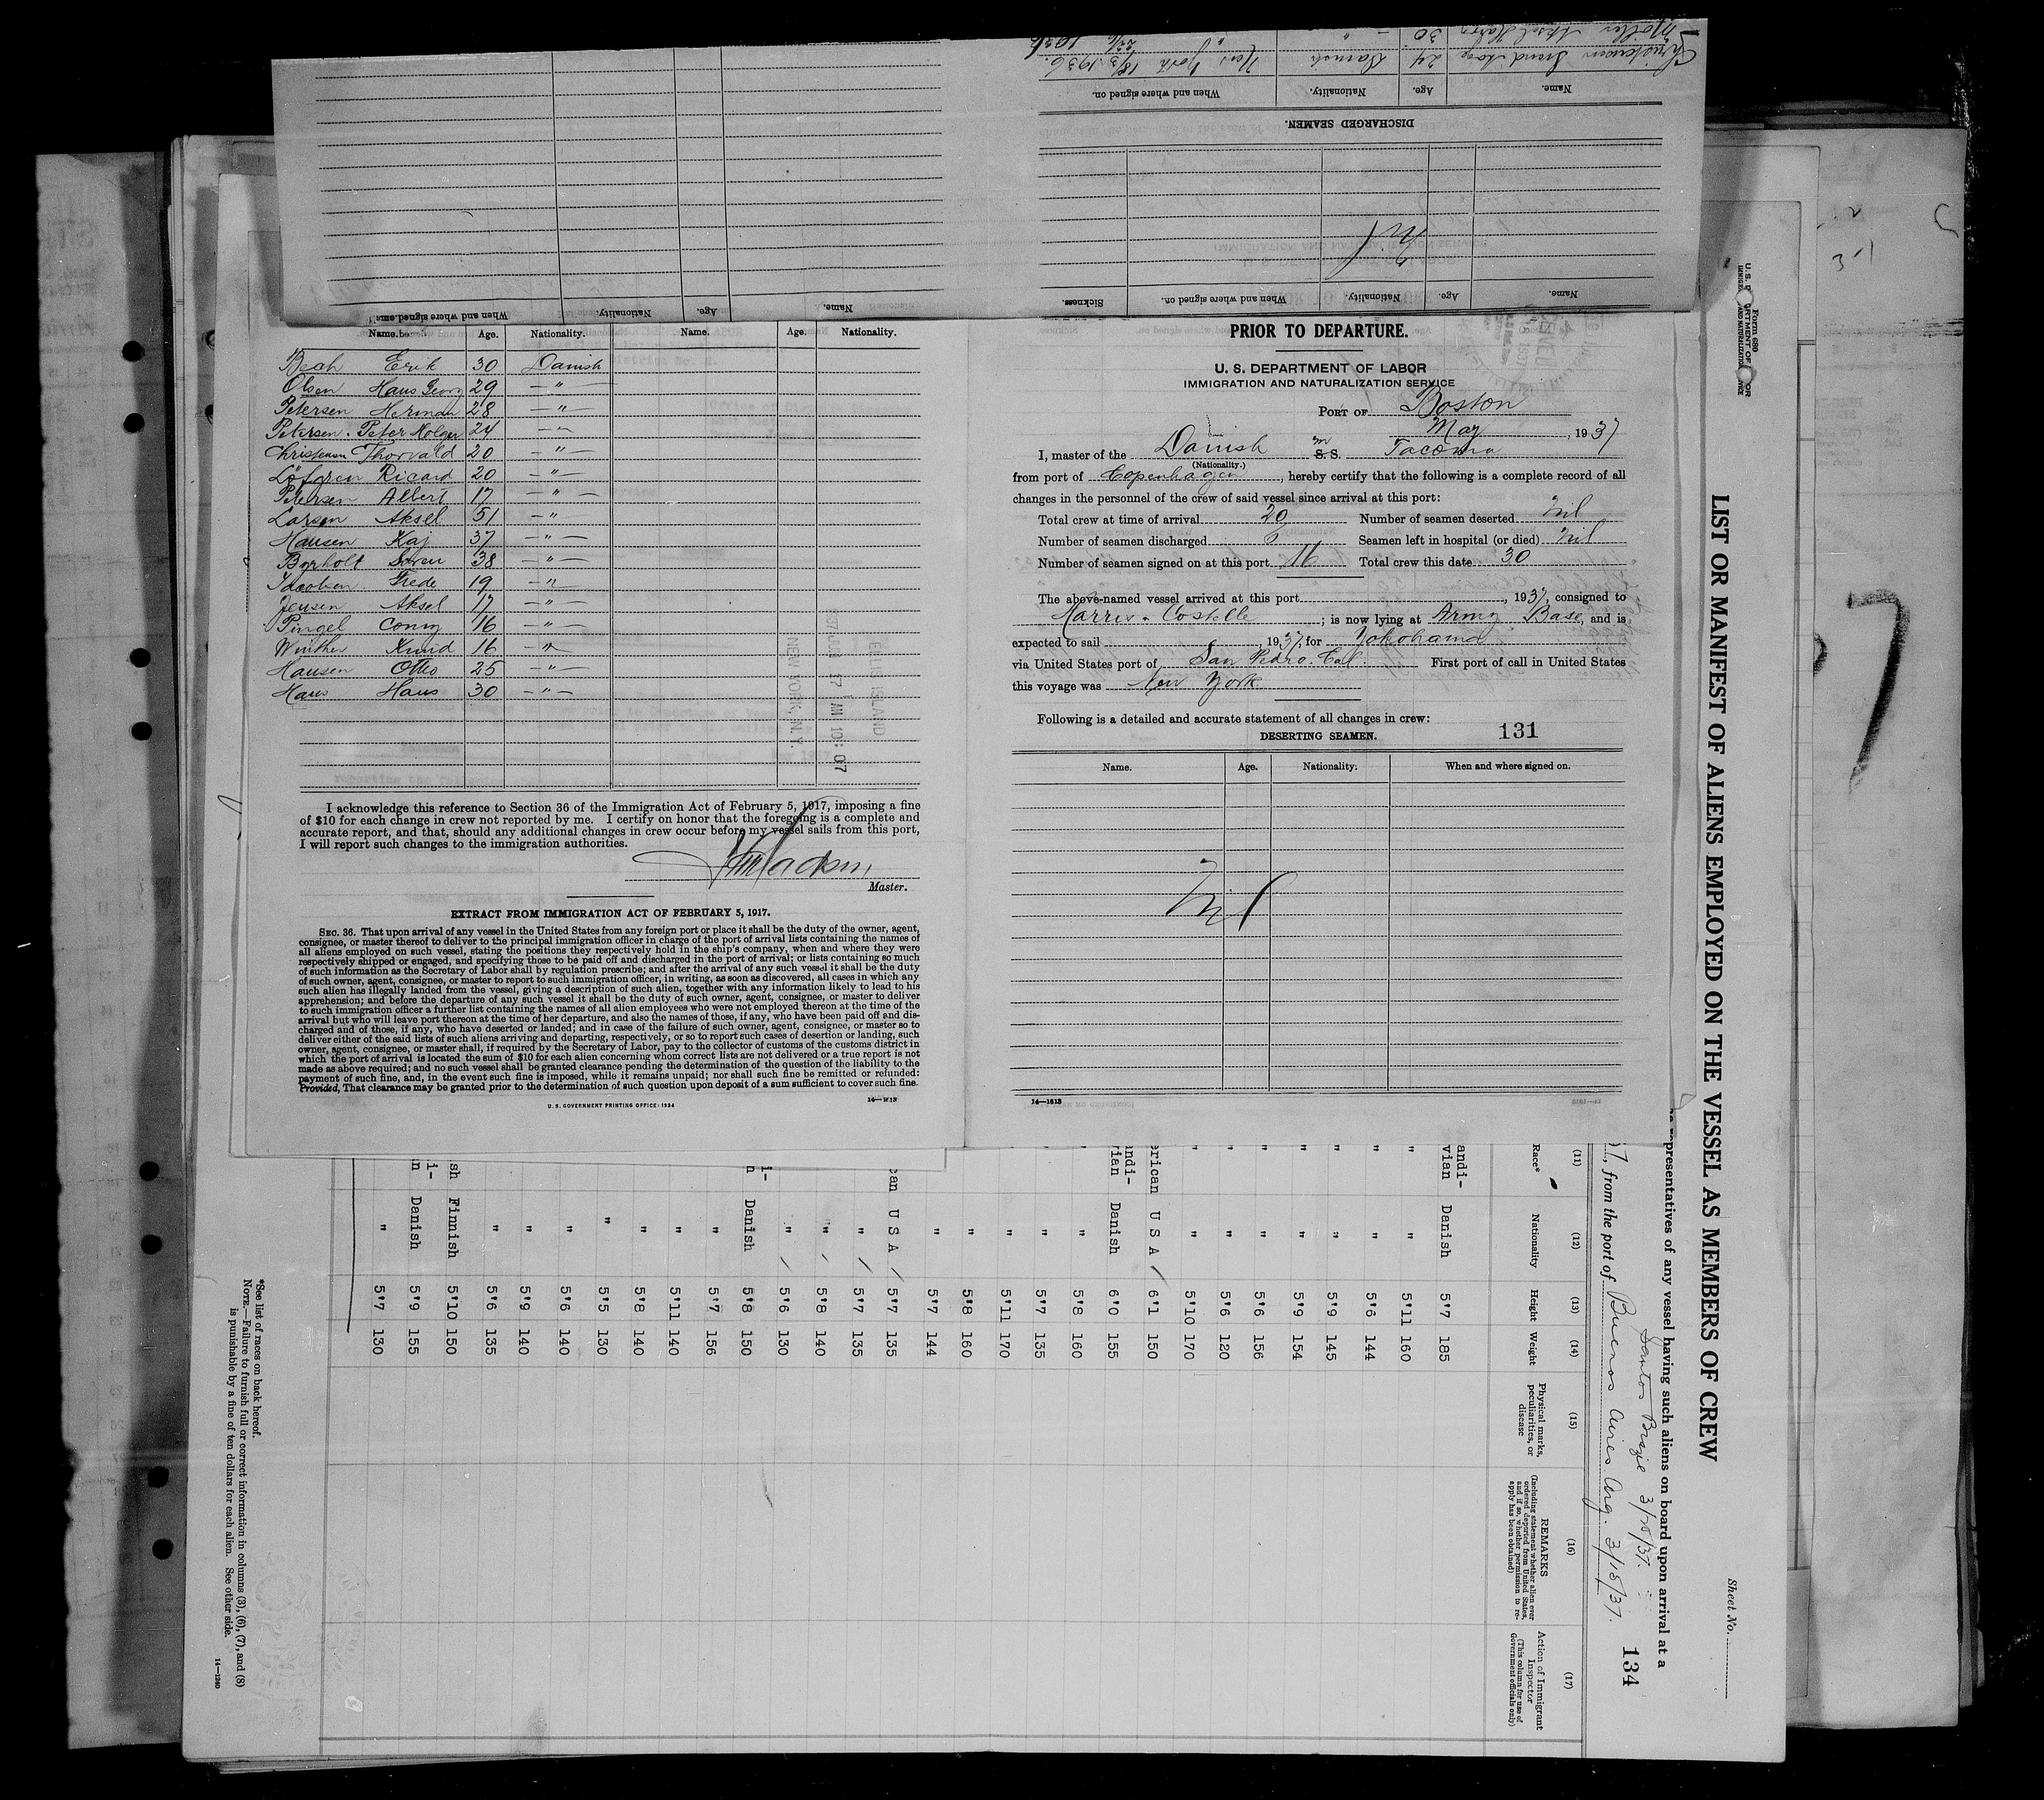 DISCHARGED SEAMEN.
Name. Age. Nationality. When and where signed on.
24 Danish New York 1936
30 " "
Name. Age. Nationality. When and where signed on. Sickness.
Nil
Name. Age. Nationality. When and where signed on.
Name. Age. Nationality. Name. Age. Nationality.
Bech Erik 30 Danish
Olsen Hans Georg 29 — " —
Petersen Herman 28 — " —
Petersen. Peter Holger 24 — " —
Christensen Thorvald 20 — " —
Löfgren Ricard 20 — " —
Petersen Albert 17 — " —
Larsen Aksel 51 — " —
Hansen Kaj 37 — " —
Byrholt Søren 38 — " —
Jacobsen Frede 19 — " —
Jensen Aksel 17 — " —
Pingel Conny 16 — " —
Winther Knud 16 — " —
Hansen Otto 25 — " —
Hans 30 — " —
ELLIS ISLAND
NEW YORK, N.Y.
I acknowledge this reference to Section 36 of the Immigration Act of February 5, 1917, imposing a fine
of $10 for each change in crew not reported by me. I certify on honor that the foregoing is a complete and
accurate report, and that, should any additional changes in crew occur before my vessel sails from this port,
I will report such changes to the immigration authorities.
Master.
EXTRACT FROM IMMIGRATION ACT OF FEBRUARY 5, 1917.
SEC. 36. That upon arrival of any vessel in the United States from any foreign port or place it shall be the duty of the owner, agent,
consignee, or master thereof to deliver to the principal immigration officer in charge of the port of arrival lists containing the names of
all aliens employed on such vessel, stating the positions they respectively hold in the ship's company, when and where they were
respectively shipped or engaged, and specifying those to be paid off and discharged in the port of arrival; or lists containing so much
of such information as the Secretary of Labor shall by regulation prescribe; and after the arrival of any such vessel it shall be the duty
of such owner, agent, consignee, or master to report to such immigration officer, in writing, as soon as discovered, all cases in which any
such alien has illegally landed from the vessel, giving a description of such alien, together with any information likely to lead to his
apprehension; and before the departure of any such vessel it shall be the duty of such owner, agent, consignee, or master to deliver
to such immigration officer a further list containing the names of all alien employees who were not employed thereon at the time of the
arrival but who will leave port thereon at the time of her departure, and also the names of those, if any, who have been paid off and dis-
charged and of those, if any, who have deserted or landed; and in case of the failure of such owner, agent, consignee, or master so to
deliver either of the said lists of such aliens arriving and departing, respectively, or so to report such cases of desertion or landing, such
owner, agent, consignee, or master shall, if required by the Secretary of Labor, pay to the collector of customs of the customs district in
which the port of arrival is located the sum of $10 for each alien concerning whom correct lists are not delivered or a true report is not
made as above required; and no such vessel shall be granted clearance pending the determination of the question of the liability to the
payment of such fine, and, in the event such fine is imposed, while it remains unpaid; nor shall such fine be remitted or refunded:
Provided, That clearance may be granted prior to the determination of such question upon deposit of a sum sufficient to cover such fine.
U. S. GOVERNMENT PRINTING OFFICE: 1934
PRIOR TO DEPARTURE.
U. S. DEPARTMENT OF LABOR
IMMIGRATION AND NATURALIZATION SERVICE
PORT OF Boston
May, 1937
I, master of the Danish m S.S. Tacoma
(Nationality.)
from port of Copenhagen, hereby certify that the following is a complete record of all
changes in the personnel of the crew of said vessel since arrival at this port:
Total crew at time of arrival 20 Number of seamen deserted Nil
Number of seamen discharged 6 Seamen left in hospital (or died) Nil
Number of seamen signed on at this port 16 Total crew this date 30
The above-named vessel arrived at this port , 1937, consigned to
Harris. Costelle; is now lying at Army Base, and is
expected to sail , 1937, for Yokohama
via United States port of San Pedro. Cal. First port of call in United States
this voyage was New York
Following is a detailed and accurate statement of all changes in crew:
DESERTING SEAMEN.
131
Name. Age. Nationality. When and where signed on.
Nil
14—1613
Form 680
LIST OR MANIFEST OF ALIENS EMPLOYED ON THE VESSEL AS MEMBERS OF CREW
Sheet No.
representatives of any vessel having such aliens on board upon arrival at a
Santos Brazil
, from the port of Buenos Aires Arg. 3/15/37.
134
(11) (12) (13) (14) (15) (16) (17)
Race* Nationality Height Weight Physical marks, peculiarities, or disease REMARKS (Including statement whether alien ever ordered deported from United States, and if so, whether permission to re-apply has been obtained) Action of Immigrant Inspector (This column for use of Government officials only)
andi-
vian Danish 5'7 185
" " 5'11 160
" " 5'6 144
" " 5'9 145
" " 5'9 154
" " 5'6 156
" " 5'6 120
" " 5'10 170
erican U S A 6'1 150
andi-
rian Danish 6'0 155
" 5'8 160
" 5'7 135
" 5'11 170
" 5'8 160
" 5'7 144
can U S A 5'7 135
" 5'7 135
" 5'8 140
" 5'6 130
i-
n Danish 5'8 150
" 5'7 156
" 5'11 140
" 5'8 140
" 5'5 130
" 5'6 140
" 5'9 140
" 5'6 135
sh Finnish 5'10 150
i-
n Danish 5'9 155
" 5'7 130
*See list of races on back hereof.
NOTE.—Failure to furnish full or correct information in columns (3), (6), (7), and (8)
is punishable by a fine of ten dollars for each alien. See other side.
14—1240